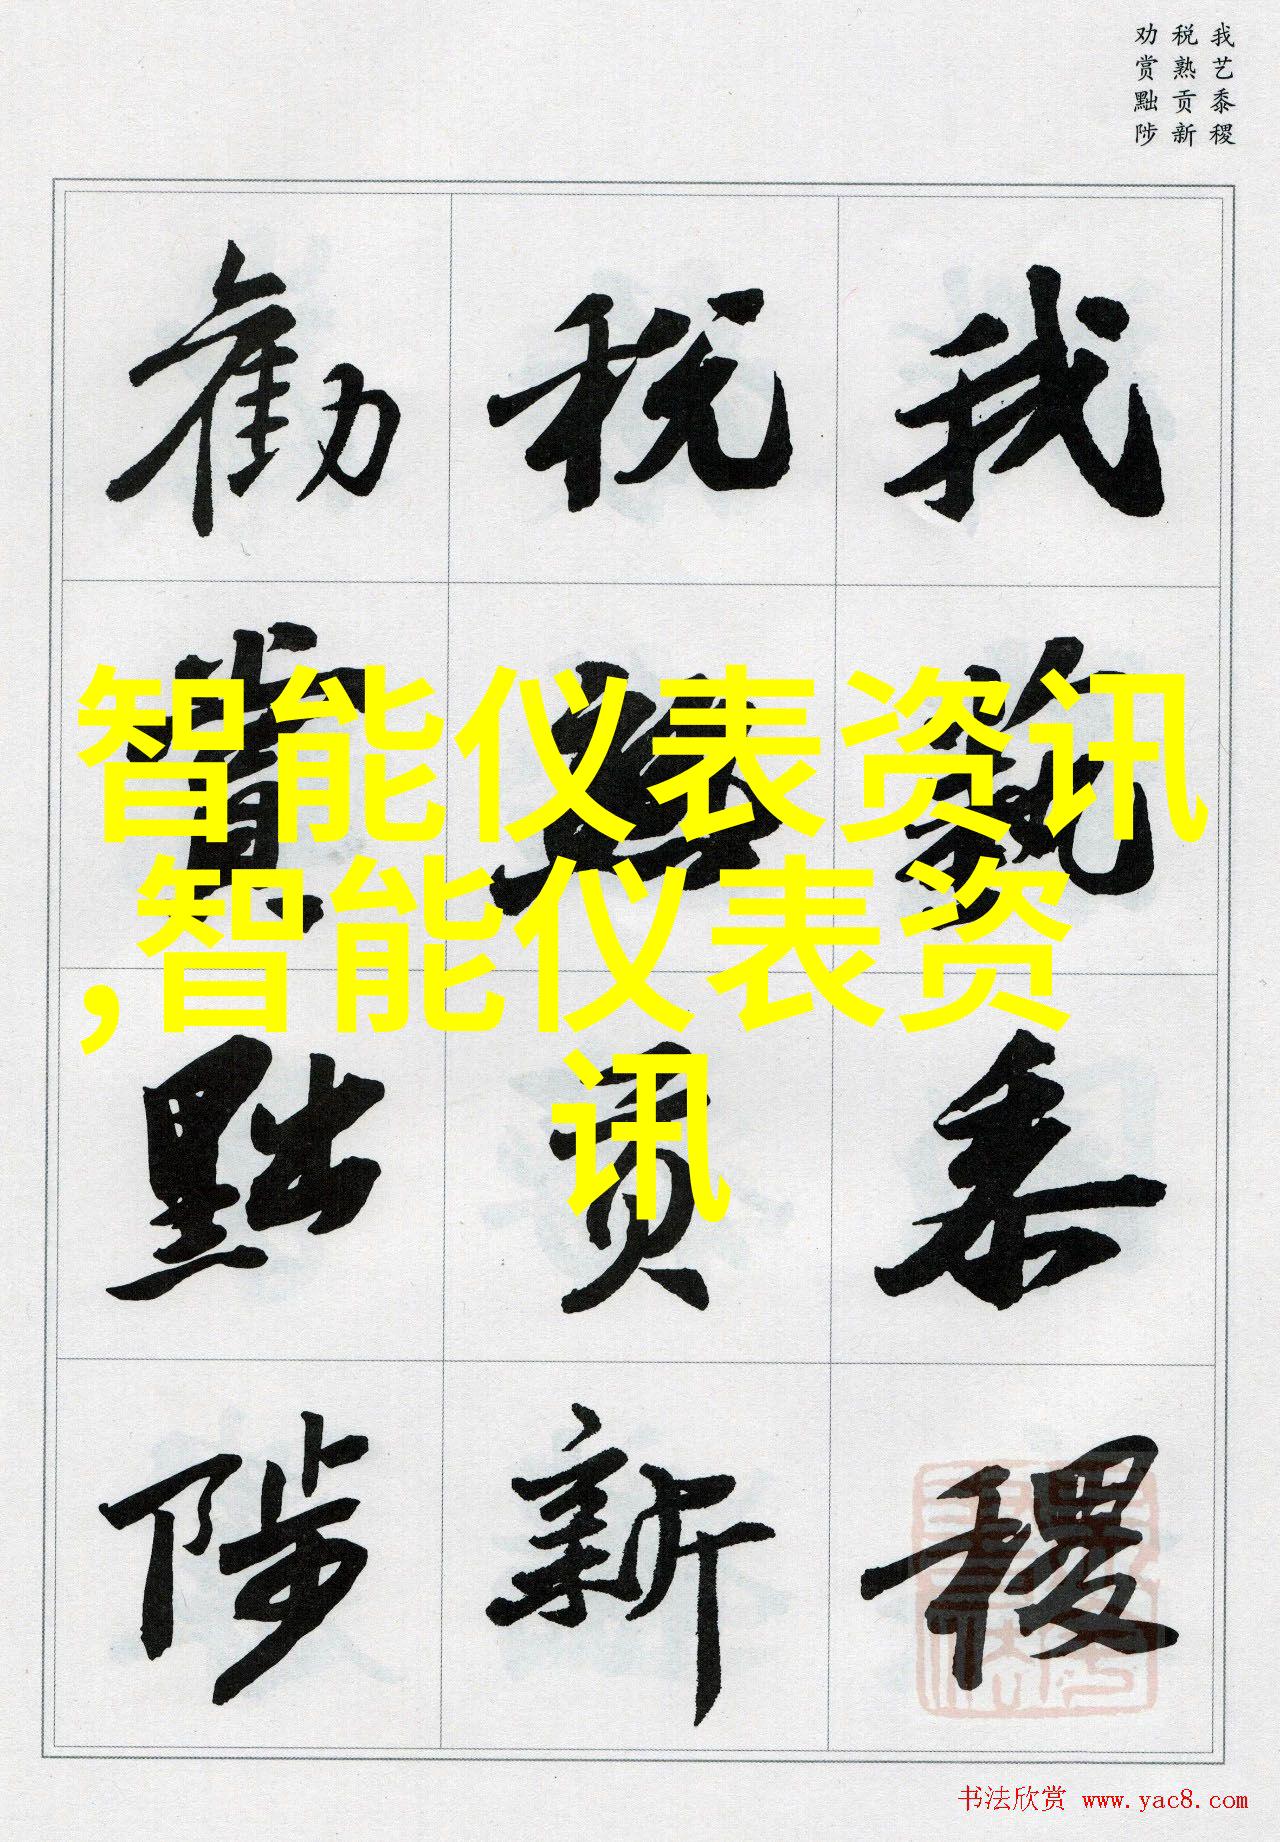 我艺黍稷
税熟贡新
劝赏黜陟
我
艺
黍
稷
税
熟
贡
新
勸
賞
黜
陟
智能仪表资讯
,智能仪表资
讯
书法欣赏 www.yac8.com